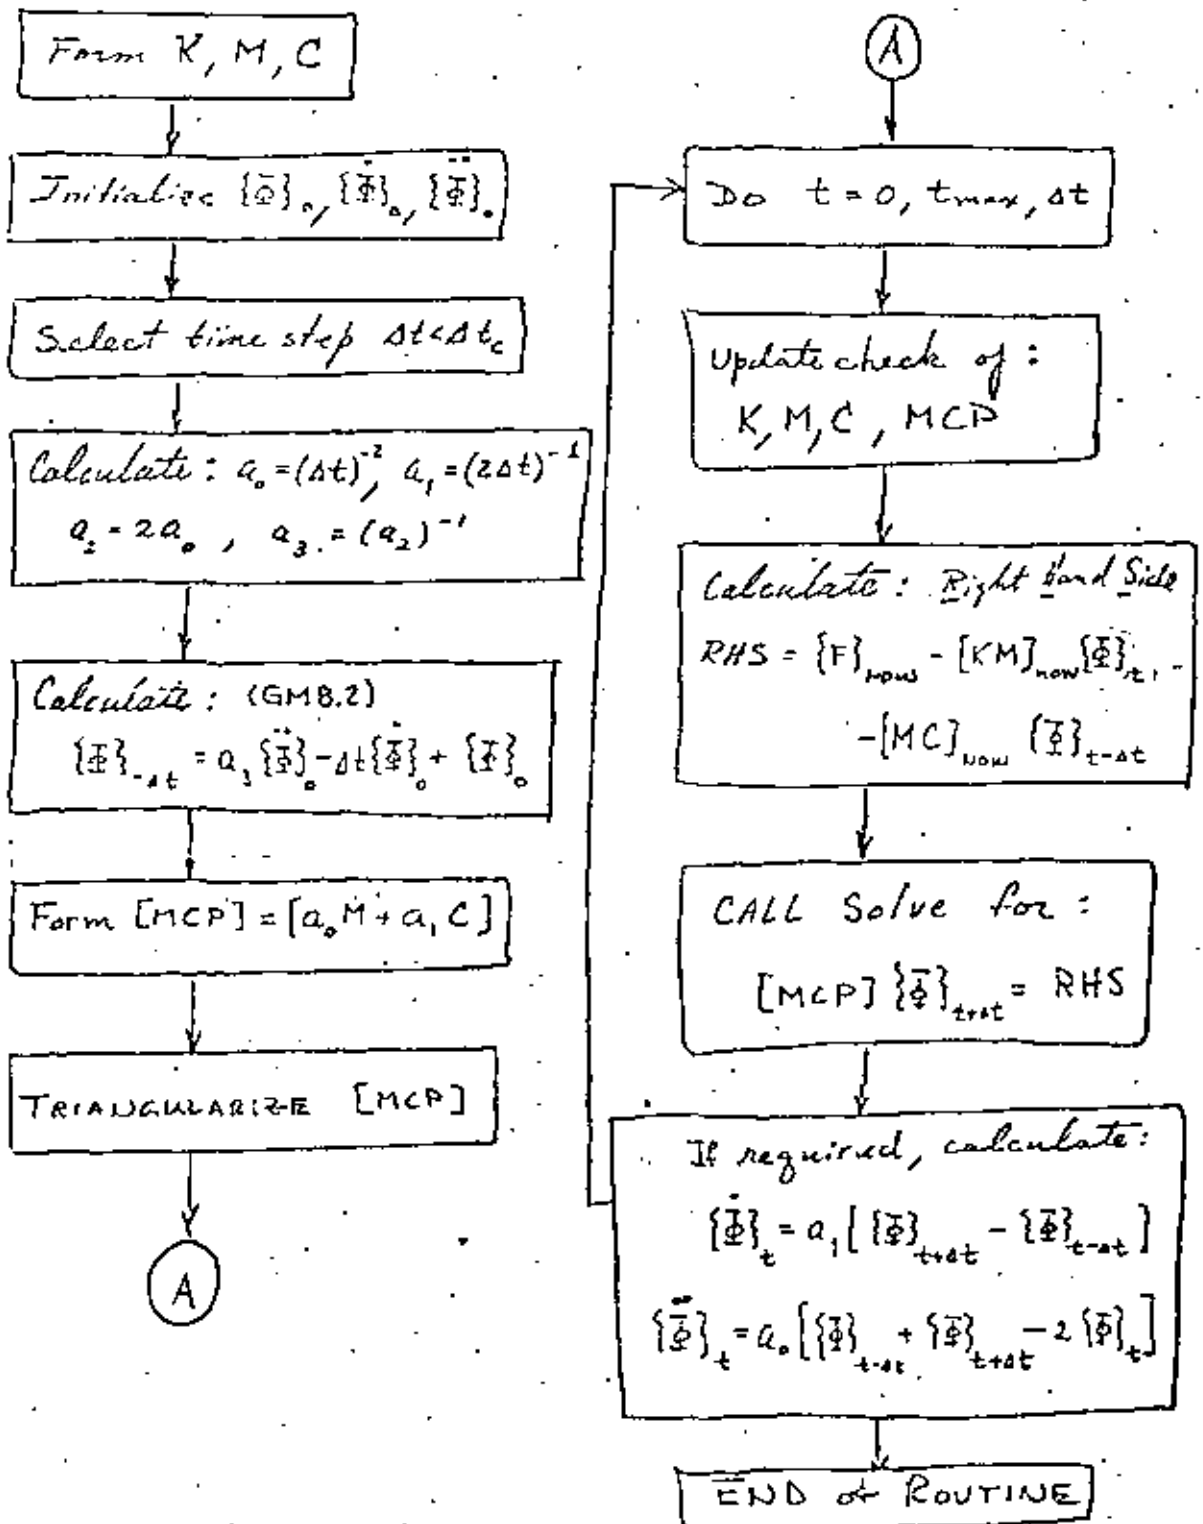 Form K, M, C
Initialize {Φ̄}₀, {Φ̄̇}₀, {Φ̄̈}₀
Select time step Δt<Δt_c
Calculate: a₀=(Δt)⁻², a₁=(2Δt)⁻¹
a₂=2a₀, a₃.=(a₂)⁻¹
Calculate: (GM8.2)
{Φ̄}_-Δt = a₃{Φ̄̈}₀-Δt{Φ̄̇}₀+{Φ̄}₀
Form [MCP]=[a₀M+a₁C]
TRIANGULARIZE [MCP]
A
A
Do t=0, tmax, Δt
Update check of:
K, M, C, MCP
Calculate: Right Hand Side
RHS = {F}_now - [KM]_now{Φ̄}_t
-[MC]_now {Φ̄}_t-Δt
CALL Solve for:
[MCP]{Φ̄}_t+Δt = RHS
If required, calculate:
{Φ̄̇}_t = a₁[{Φ̄}_t+Δt - {Φ̄}_t-Δt]
{Φ̄̈}_t = a₀[{Φ̄}_t-Δt + {Φ̄}_t+Δt - 2{Φ̄}_t]
END of ROUTINE